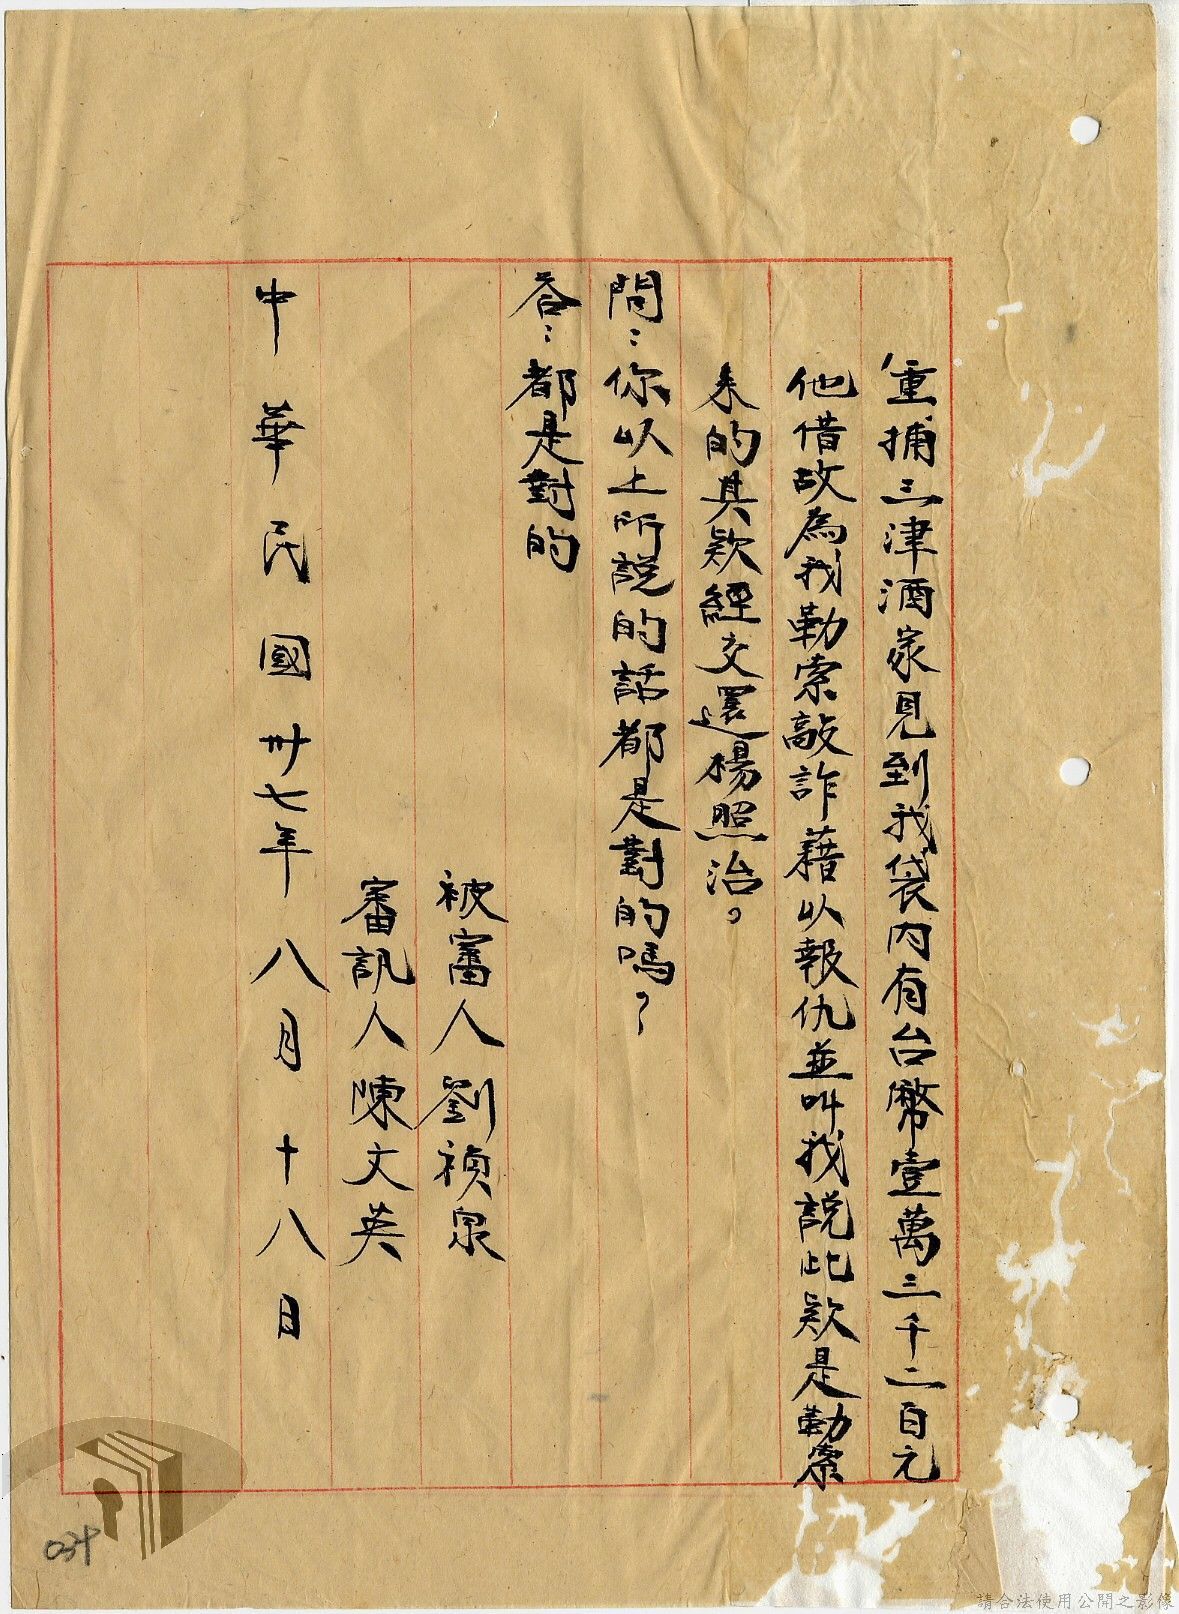 重捕三津酒家見到我袋內有台幣壹萬三千二百元
他借故為我勒索敲詐藉以報仇並叫我說此欵是勒索
来的其欵經交還楊照治。
問：你以上所説的話都是對的嗎？
答：都是對的
被審人劉禎泉
審訊人陳文英
中華民國卅七年八月十八日
034
請合法使用公開之影像